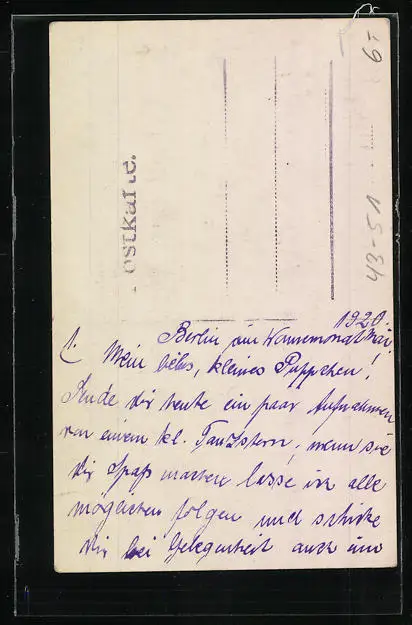 Postkarte.
6.-
43-51
1920
Berlin im Wonnemonat Mai
1. Mein liebes, kleines Püppchen!
Sende dir heute ein paar Aufnahmen
von einem kl. Tanzstern, wenn sie
dir Spaß machen lasse ich alle
möglichen folgen und schicke
dir bei Gelegenheit auch um